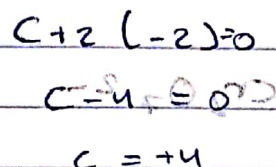 C+2 (-2)=0
C-4 = 0
C = +4